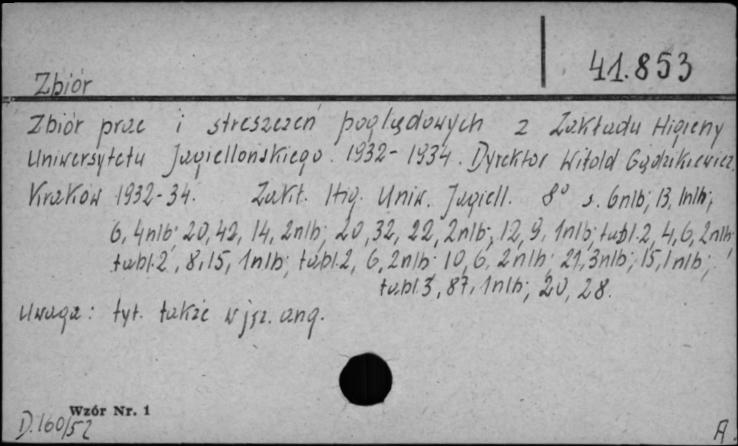 41.853
Zbiór
Zbiór prac i streszczeń poglądowych z Zakładu Higieny
Uniwersytetu Jagiellońskiego. 1932-1934. Dyrektor Witold Gądzikiewicz.
Kraków 1932-34. Zakł. Hig. Uniw. Jagiell. 8° s. 6nlb; 13, 1nlb;
6, 4nlb; 20, 42, 14, 2nlb; 20, 32, 22, 2nlb; 12, 9, 1nlb; tabl.2, 4, 6, 2nlb
tabl.2, 8, 15, 1nlb; tabl.2, 6, 2nlb; 10, 6, 2nlb; 21, 3nlb; 15, 1nlb;
tabl.3, 87, 1nlb; 20, 28.
Uwaga: tyt. także w jęz. ang.
Wzór Nr. 1
D.160/52
A